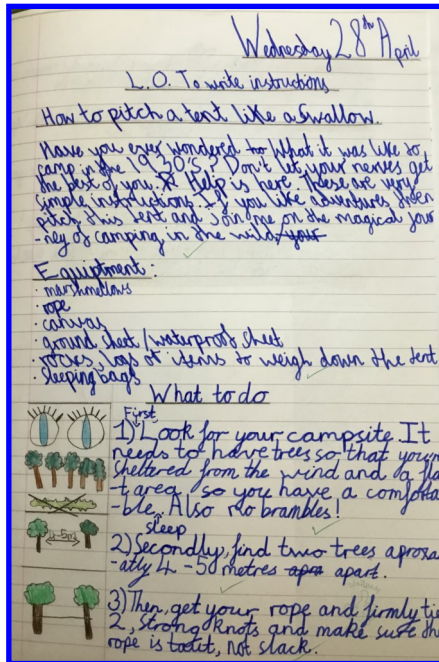 Wednesday 28th April
L.O. To write instructions
How to pitch a tent like a Swallow.
Have you ever wondered to What it was like to
camp in the 1930's? Don't let your nerves get
the best of you. Help is here. These are very
simple instructions. If you like adventures then
pitch this tent and join me on the magical jour
-ney of camping in the wild, your
Equiptment:
· marshmellows
· rope
· canvas
· ground sheet/waterproof sheet
· rocks, bags of items to weigh down the tent
· sleeping bags
What to do
First
1) Look for your campsite It
needs to have trees so that your
sheltered from the wind and a fla
-t area, so you have a comforta
-ble. Also no brambles!
sleep
4-5m
2) Secondly, find two trees aproxa
-atly 4-50 metres apra apart.
3) Then, get your rope and firmly tie
2, strong knots and make sure the
rope is taut, not slack.